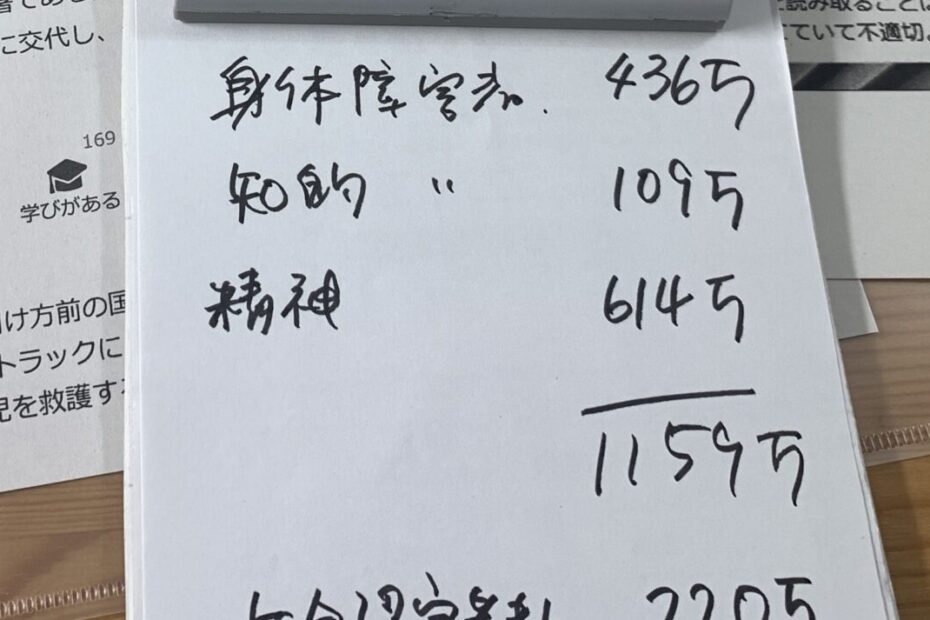 に交代し、
169
学びがある
け方前の国
トラックに
児を救護す
読み取ることは
ていて不適切。
身体障害者. 436万
知的 〃 109万
精神 614万
1159万